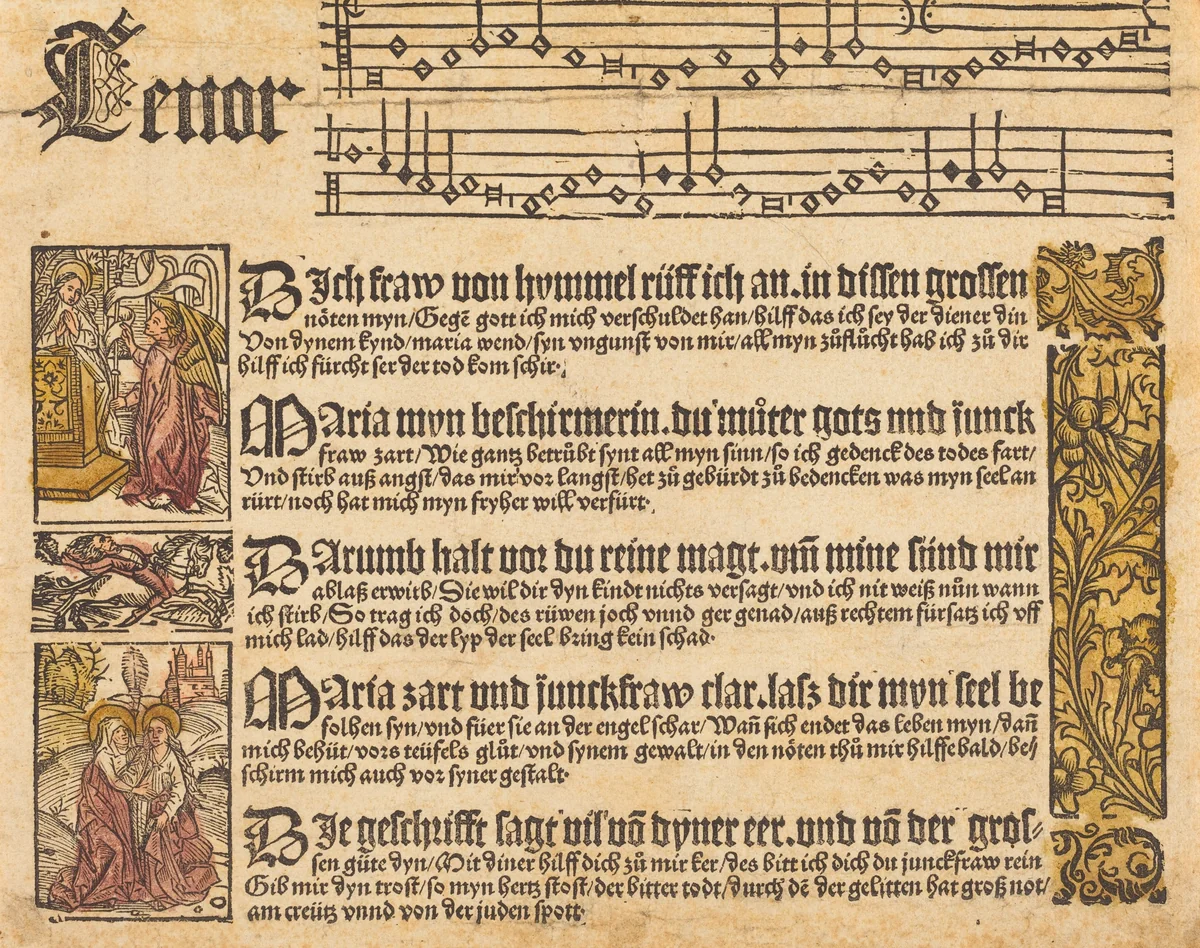 Tenor
DIch fraw von hymmel rüff ich an. in dissen grossen
nöten myn/Gegē gott ich mich verschuldet han/hilff das ich sey der diener din
Von dynem kynd/maria wend/syn vngunst von mir/all myn zůflůcht hab ich zů dir
hilff ich fürcht ser der tod kom schir.
MAria myn beschirmerin. du můter gots vnd junck
fraw zart/Wie gantz betrůbt synt all myn sinn/so ich gedenck des todes fart/
Vnd stirb auß angst/das mir vor langst/het zů gebürdt zů bedencken was myn seel an
rürt/noch hat mich myn fryher will verfürt.
DArumb halt vor du reine magt. vm̄ mine sünd mir
ablaß erwirb/Die wil dir dyn kindt nichts versagt/vnd ich nit weiß nůn wann
ich stirb/So trag ich doch/des rüwen joch vnnd ger genad/auß rechtem fürsatz ich vff
mich lad/hilff das der lyp der seel bring kein schad.
MAria zart vnd junckfraw clar. lasz dir myn seel be
folhen syn/vnd füer sie an der engel schar/Wañ sich endet das leben myn/dañ
mich behüt/vors teüfels glůt/vnd synem gewalt/in den nöten thů mir hilffe bald/be/
schirm mich auch vor syner gestalt.
DIe geschrifft sagt vil vō dyner eer. vnd vō der gros⸗
sen güte dyn/Mit diner hilff dich zů mir ker/des bitt ich dich du junckfraw rein
Gib mir dyn trost/so myn hertz stost/der bitter todt/durch dē der gelitten hat groß not/
am creütz vnnd von der juden spott.